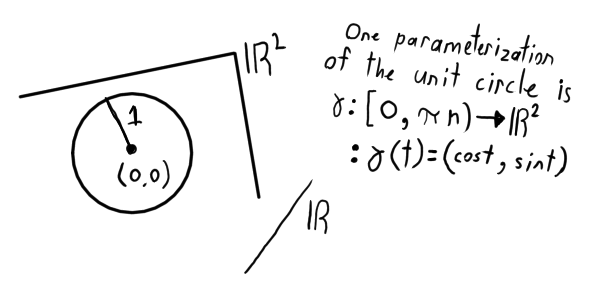 ℝ²
1
(0,0)
ℝ
One parameterization
of the unit circle is
γ: [0, πn) → ℝ²
: γ(t) = (cost, sint)